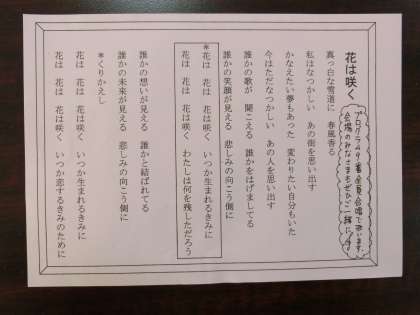 花は咲く
プログラム9番 全員合唱で歌います。
会場のみなさまもぜひご一緒に
真っ白な雪道に　春風香る
私はなつかしい　あの街を思い出す
かなえたい夢もあった　変わりたい自分もいた
今はただなつかしい　あの人を思い出す
誰かの歌が　聞こえる　誰かをはげましてる
誰かの笑顔が見える　悲しみの向こう側に
＊花は　花は　花は咲く　いつか生まれるきみに
花は　花は　花は咲く　わたしは何を残しただろう
誰かの想いが見える　誰かと結ばれてる
誰かの未来が見える　悲しみの向こう側に
＊くりかえし
花は　花は　花は咲く　いつか生まれるきみに
花は　花は　花は咲く　いつか恋するきみのために